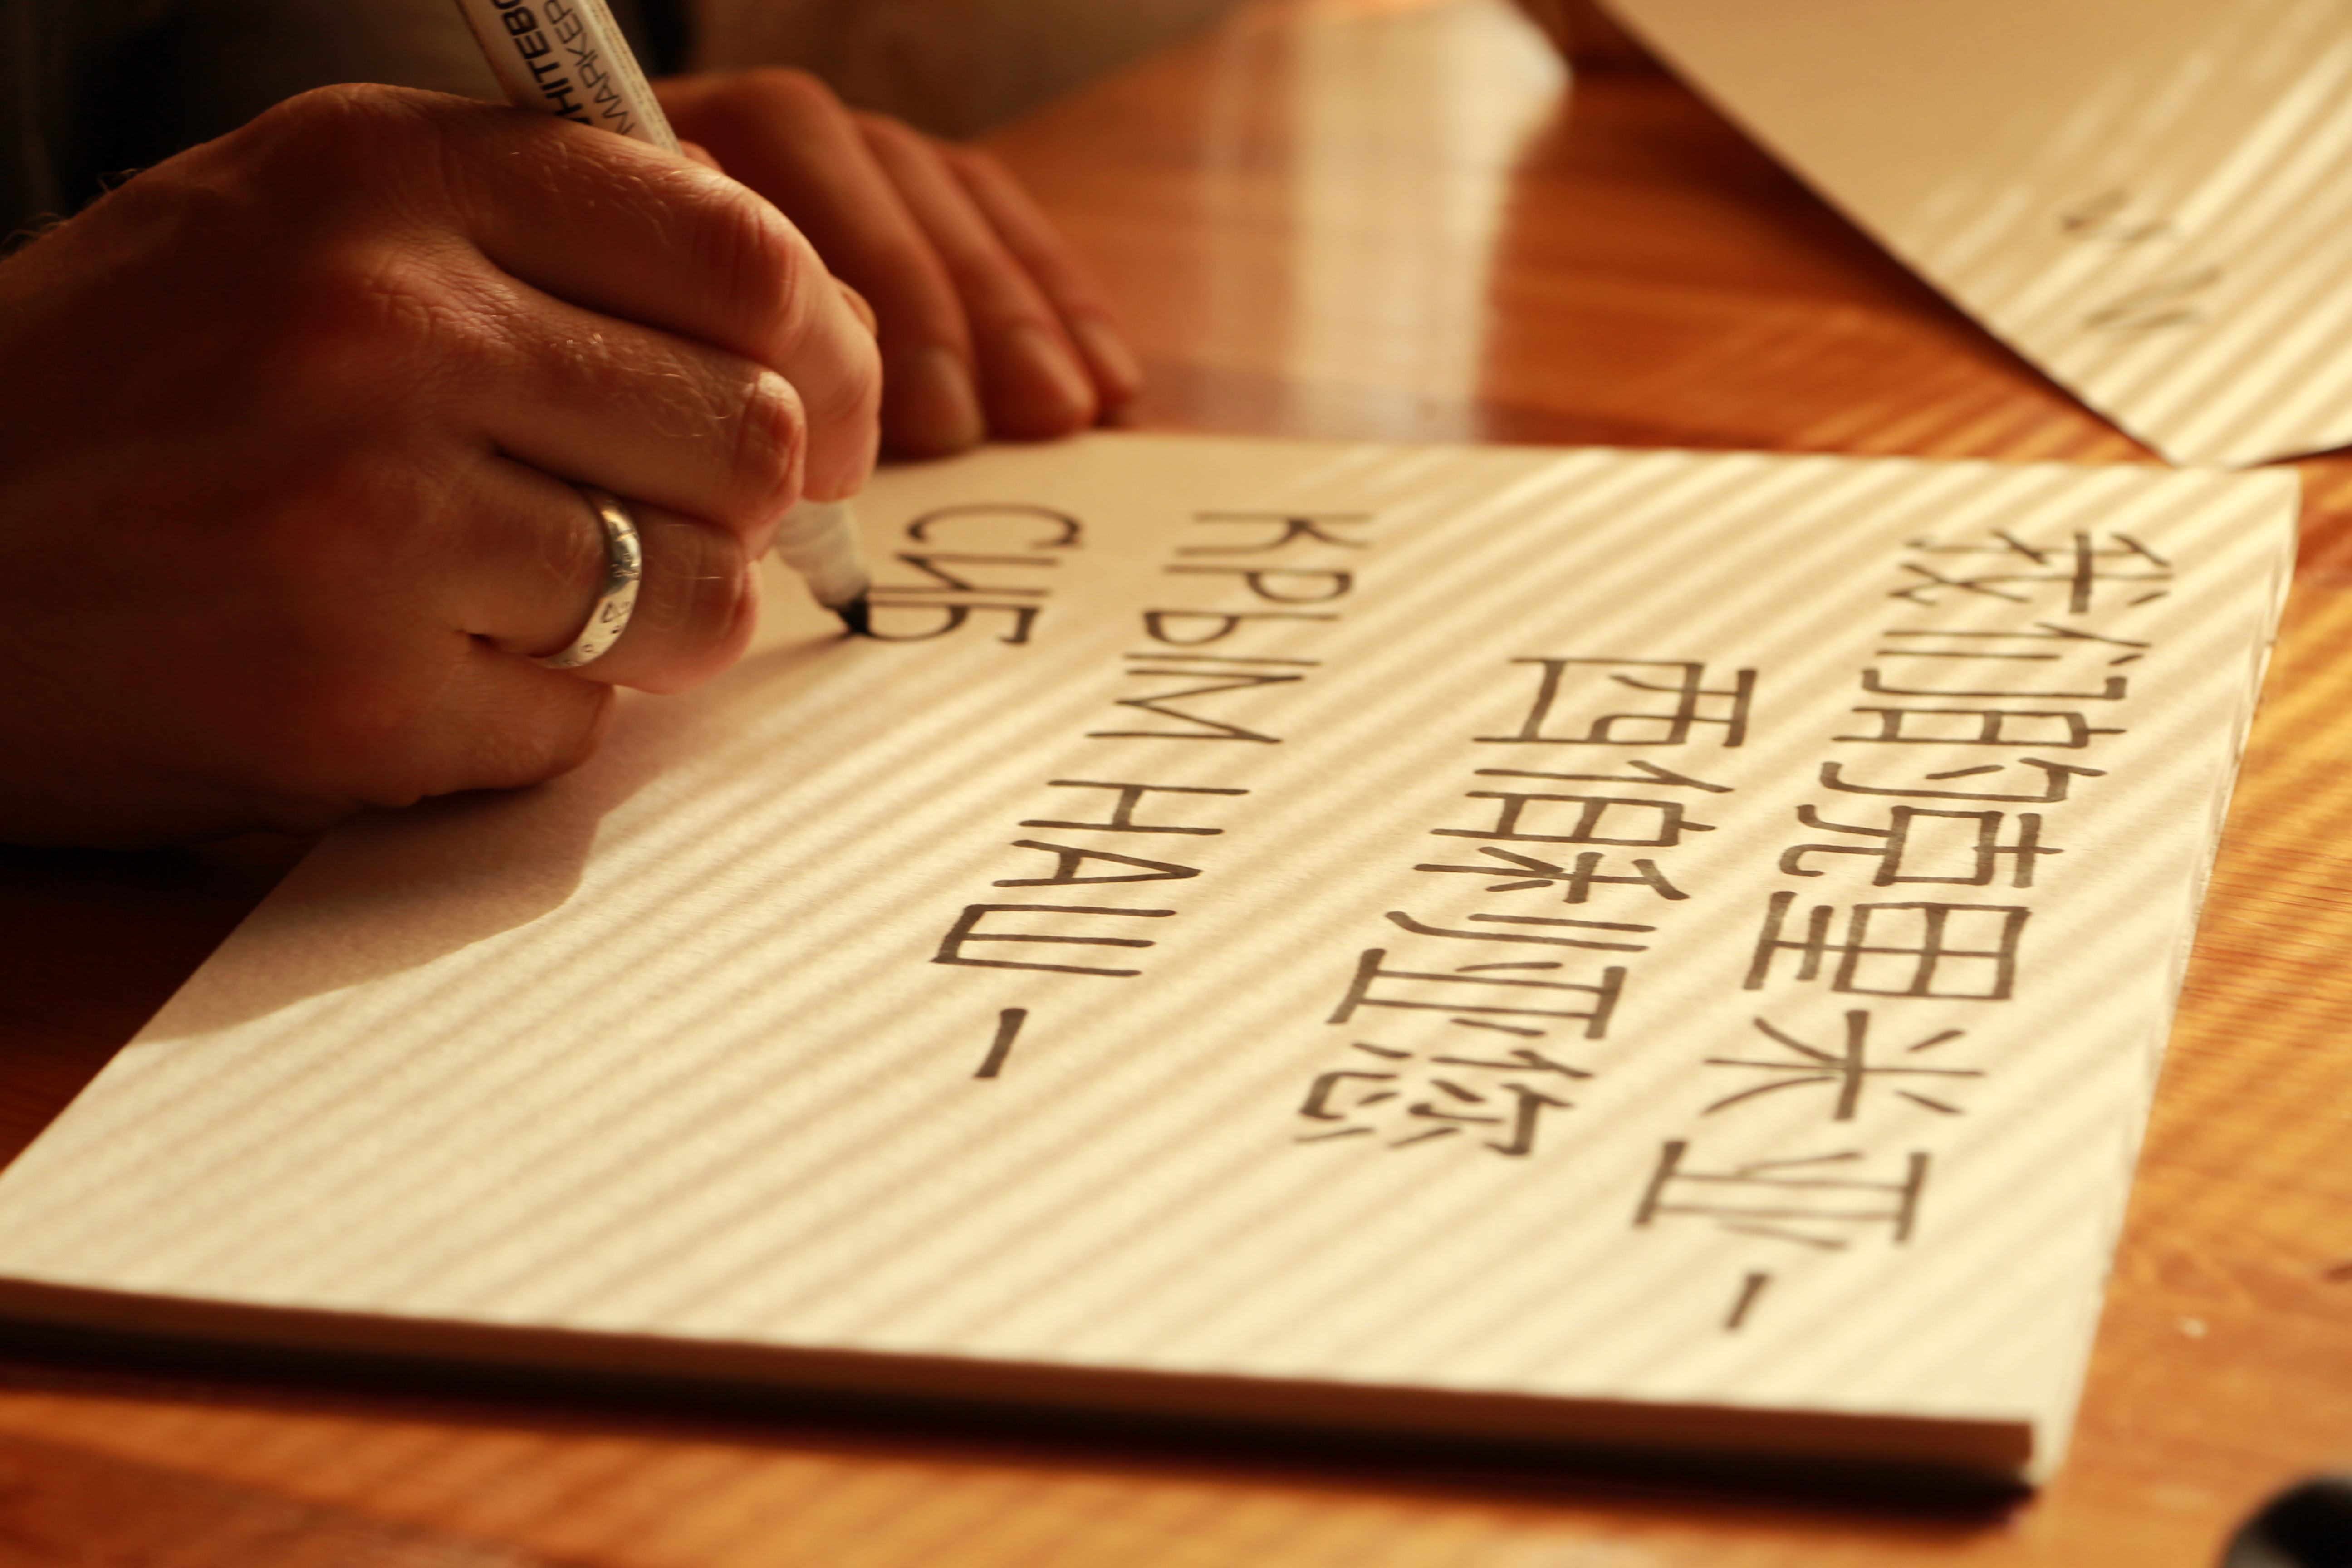 我们的克里米亚 –
西伯利亚您
КРЫМ НАШ –
СИБ
WHITEBO
MARKER